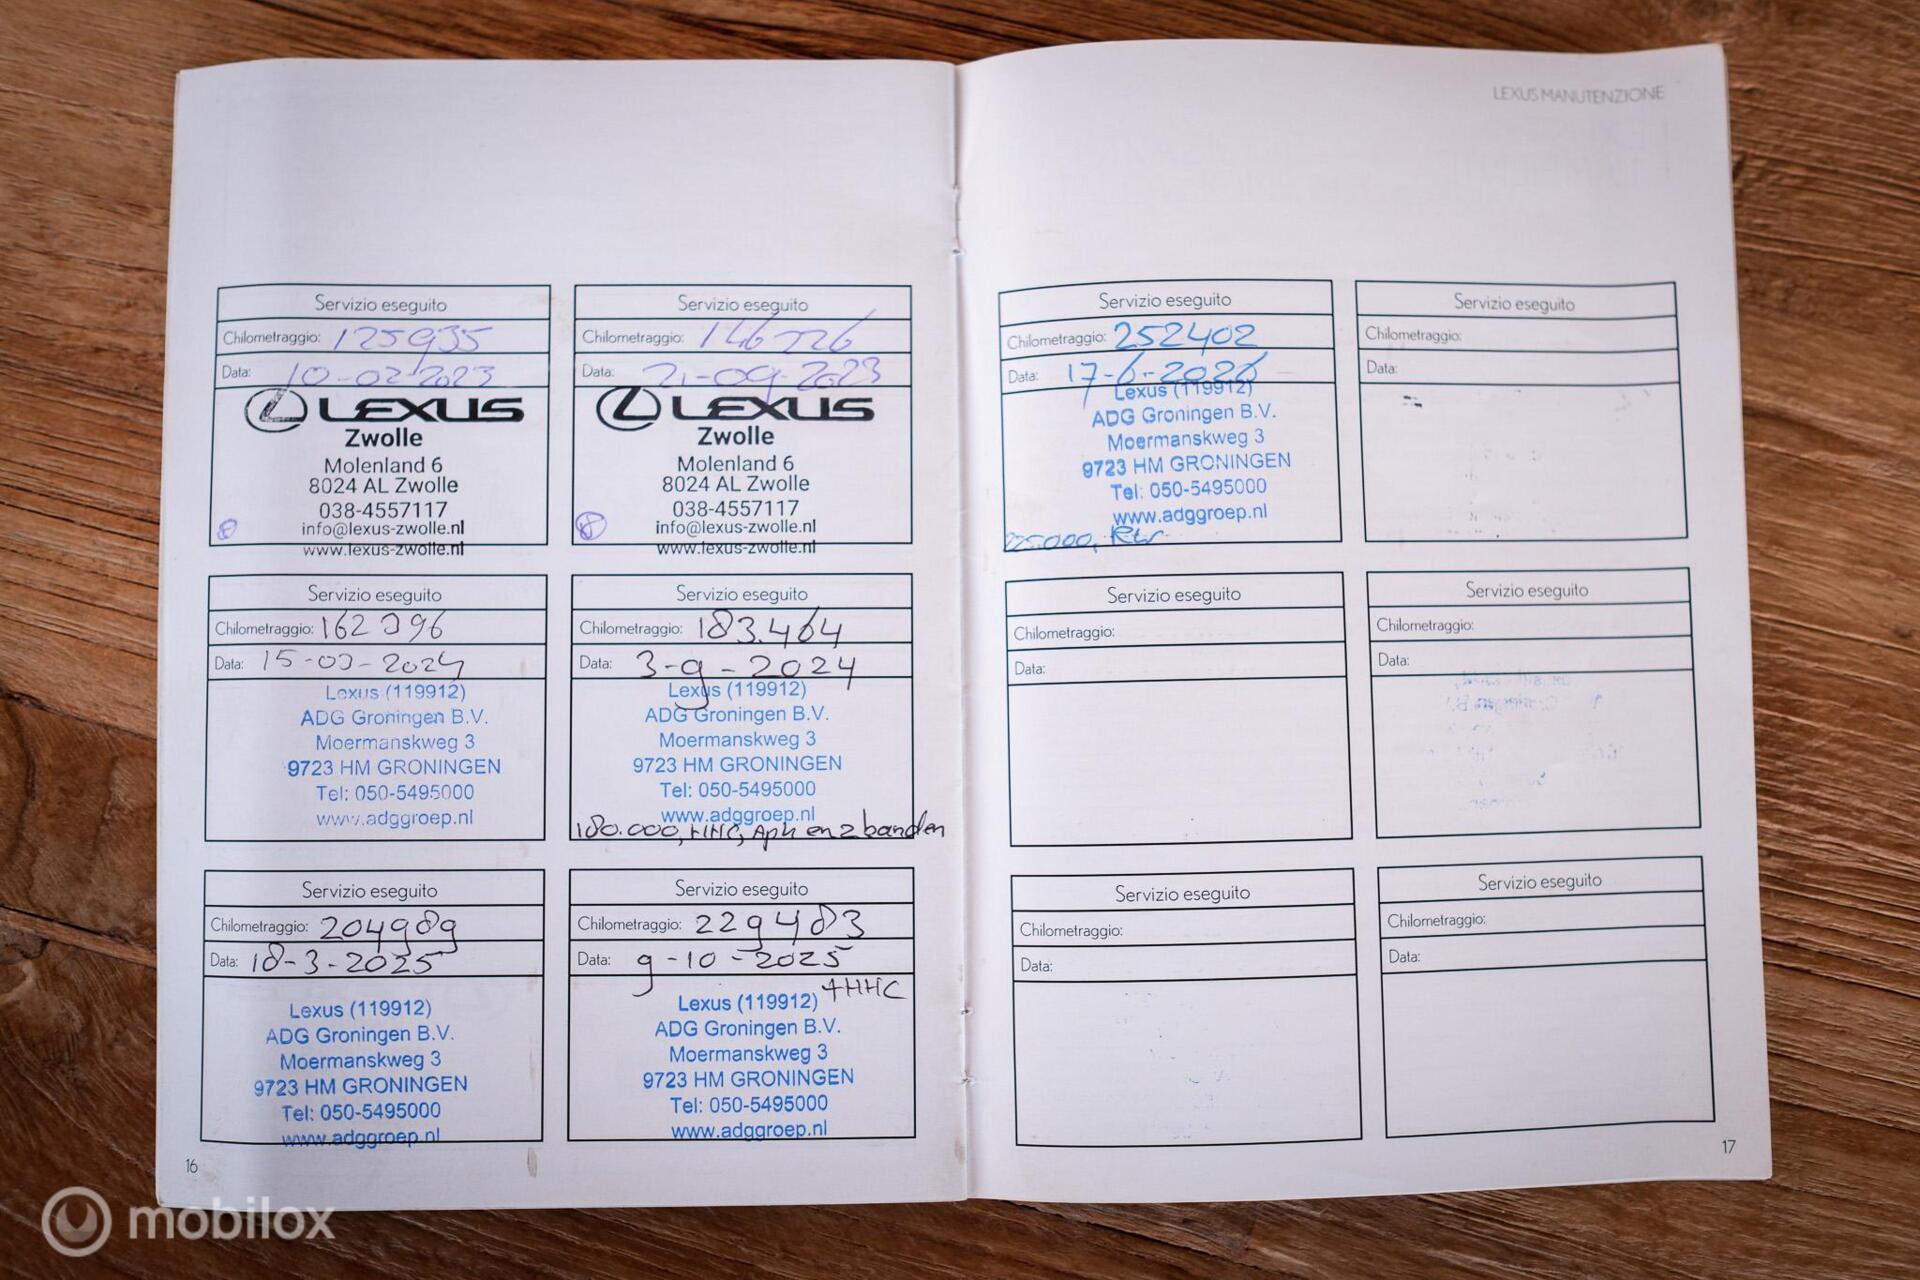 LEXUS MANUTENZIONE
Servizio eseguito
Chilometraggio: 125935
Data: 10-02-2023
LEXUS
Zwolle
Molenland 6
8024 AL Zwolle
038-4557117
info@lexus-zwolle.nl
www.lexus-zwolle.nl
Servizio eseguito
Chilometraggio: 146226
Data: 21-09-2023
LEXUS
Zwolle
Molenland 6
8024 AL Zwolle
038-4557117
info@lexus-zwolle.nl
www.lexus-zwolle.nl
Servizio eseguito
Chilometraggio:
Data: 15-03-2024
Lexus (119912)
ADG Groningen B.V.
Moermanskweg 3
9723 HM GRONINGEN
Tel: 050-5495000
www.adggroep.nl
Servizio eseguito
Chilometraggio: 183.464
Data: 3-9-2024
Lexus (119912)
ADG Groningen B.V.
Moermanskweg 3
9723 HM GRONINGEN
Tel: 050-5495000
www.adggroep.nl
180.000, HHC, Apk en 2 banden
Servizio eseguito
Chilometraggio: 204989
Data: 18-3-2025
Lexus (119912)
ADG Groningen B.V.
Moermanskweg 3
9723 HM GRONINGEN
Tel: 050-5495000
www.adggroep.nl
Servizio eseguito
Chilometraggio: 229483
Data: 9-10-2025
+HHC
Lexus (119912)
ADG Groningen B.V.
Moermanskweg 3
9723 HM GRONINGEN
Tel: 050-5495000
www.adggroep.nl
16
Servizio eseguito
Chilometraggio: 252402
Data: 17-6-2026
Lexus (119912)
ADG Groningen B.V.
Moermanskweg 3
9723 HM GRONINGEN
Tel: 050-5495000
www.adggroep.nl
225.000,
Servizio eseguito
Chilometraggio:
Data:
Servizio eseguito
Chilometraggio:
Data:
Servizio eseguito
Chilometraggio:
Data:
Servizio eseguito
Chilometraggio:
Data:
Servizio eseguito
Chilometraggio:
Data:
17
mobilox